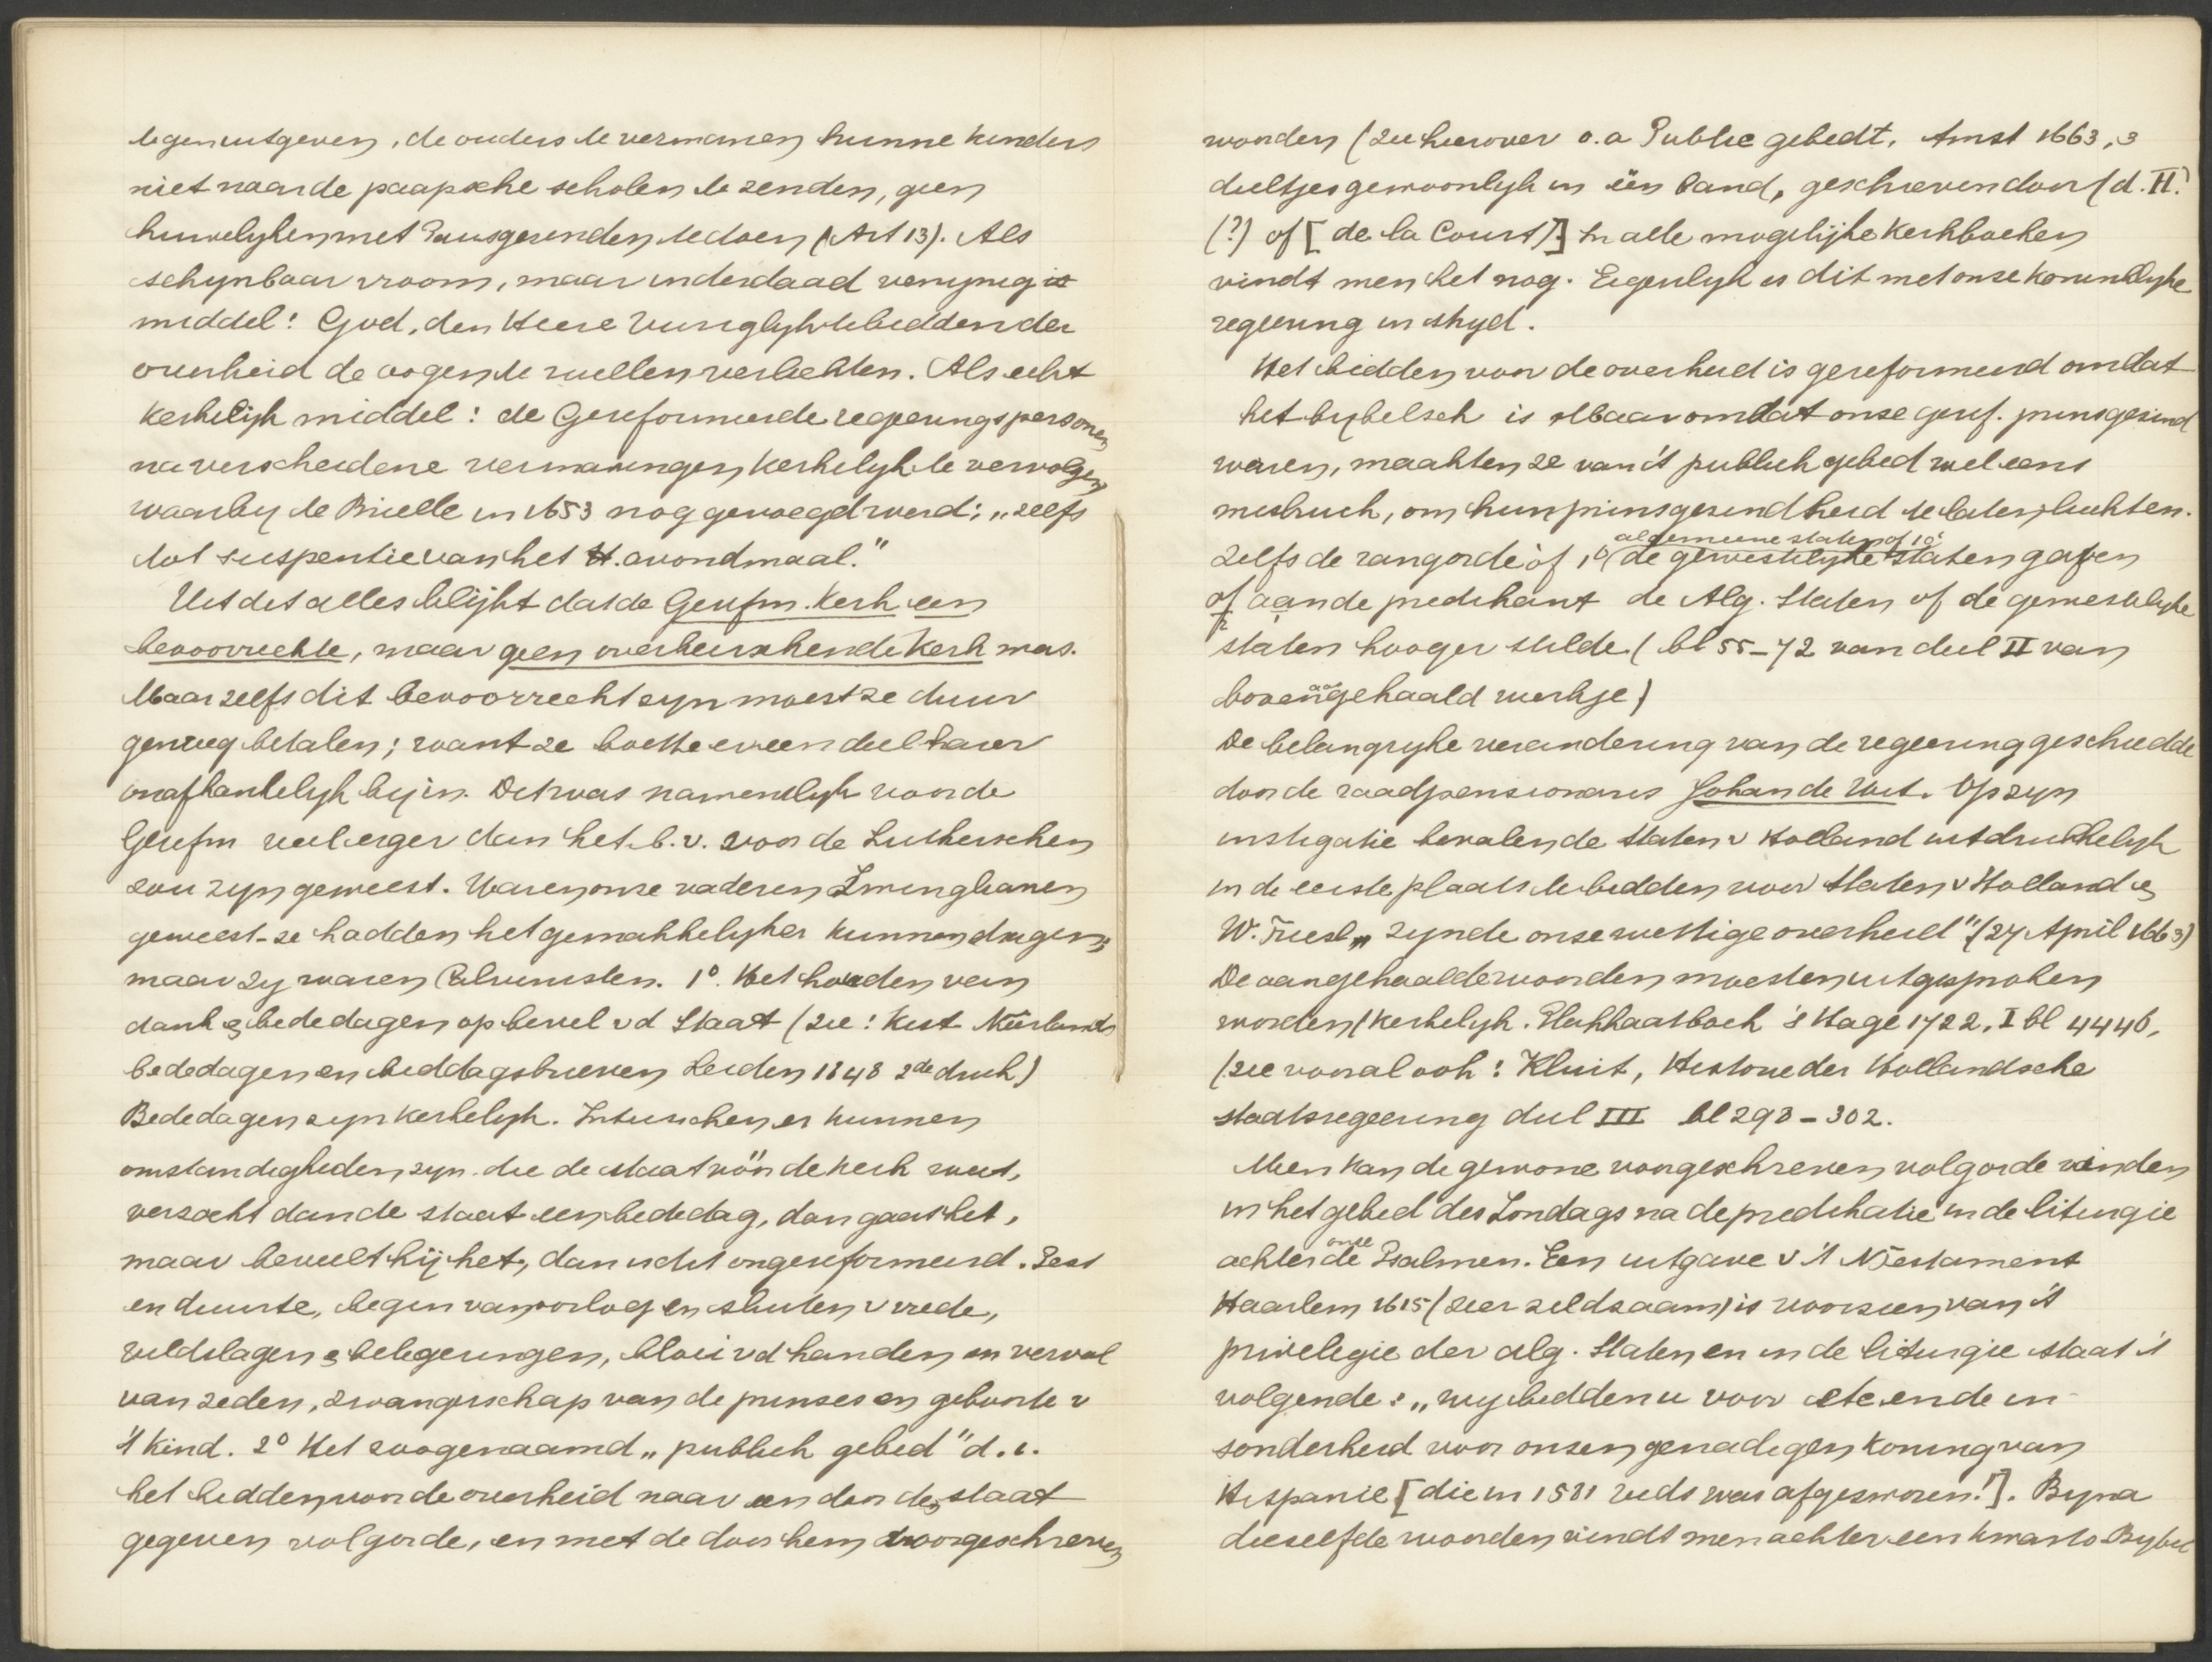 tegen uitgeven, de ouders te vermanen hunne kinders
niet naar de paapsche scholen te zenden, geen
huwelyken met Pausgezinden te doen (Art 13). Als
schynbaar vroom, maar inderdaad venynig is
middel: God, den Heere vuriglyk te bidden der
overheid de oogen te willen verlichten. Als echt
kerkelijk middel: de Gereformeerde regeeringspersonen
na verscheidene vermaningen kerkelyk te vervolgen
waarby te Brielle in 1653 nog gevoegd werd: „zelfs
tot suspentie van het H. avondmaal."
Uit dit alles blijkt dat de Gerefm. Kerk een
bevoorrechte, maar geen overheerschende Kerk was.
Maar zelfs dit bevoorrecht zyn moest ze duur
genoeg betalen; want ze boette er een deel harer
onafhankelyk by in. Dit was namentlyk voor de
Gerefm veel erger dan het b.v. voor de Lutherschen
zou zyn geweest. Waren onze vaderen Zwinglianen
geweest - ze hadden het gemakkelyker kunnen dragen;
maar zy waren Calvinisten. 1º. Het houden van
dank & bededagen op bevel v d Staat (zie: Kist Neêrlands
bededagen en biddagsbrieven Leiden 1848 2de druk)
Bededagen zyn kerkelyk. Intusschen er kunnen
omstandigheden zyn die de staat vóór de kerk weet,
verzoekt dan de staat een bededag, dan gaat het,
maar beveelt hij het, dan is dit ongereformeerd. Pest
en duurte, begin van oorlog en sluiten v vrede,
veldslagen & belegeringen, bloei v d handen en verval
van zeden, zwangerschap van de prinses en geboorte v
't kind. 2º Het zoogenaamd „publiek gebed" d.i.
het bidden voor de overheid naar een door den staat
gegeven volgorde, en met de door hem voorgeschreven
woorden (zie hierover o.a Public gebedt. Amst 1663, 3
deeltjes gewoonlyk in één band, geschreven door (d. H.
(?) of [de la Court)] In alle mogelijke kerkboeken
vindt men het nog. Eigenlyk is dit met onze koninklyke
regeering in stryd.
Het bidden voor de overheid is gereformeerd omdat
het bybelsch is Maar omdat onze geref. prinsgezind
waren, maakten ze van 't publiek gebed wel eens
misbruik, om hun prinsgezindheid te laten luchten.
algemeene staten of 10
Zelfs de rangorde òf 1º de gewestelyke staten gaven
of aan de predikant de Alg. Staten of de gewestelyke
staten hooger stelde (bl 55-72 van deel II van
aan
bovengehaald werkje)
De belangryke verandering van de regeering geschiedde
door de raadpensionaris Johan de Wit. Op zyn
instigatie bevalen de Staten v Holland uitdrukkelyk
in de eerste plaats te bidden voor Staten v Holland &
W. Friesl „zynde onze wettige overheid" (27 April 1663)
De aangehaalde woorden moesten uitgesproken
worden (kerkelyk. Plakkaatboek 's Hage 1722, I bl 4446,
(zie vooral ook: Kluit, Historie der Hollandsche
staatsregeering deel III bl 298-302.
Men kan de gewone voorgeschreven volgorde vinden
in het gebed des Zondags na de predikatie in de liturgie
onze
achter de Psalmen. Een uitgave v 't N Testament
Haarlem 1615 (zeer zeldzaam) is voorzien van 't
privelegie der alg. Staten en in de liturgie staat 't
volgende: „wy bidden u voor etc ende in
sonderheid voor onsen genadigen koning van
Hispanie [die in 1581 reeds was afgezworen!]. Byna
diezelfde woorden vindt men achter een kwarto Bybel